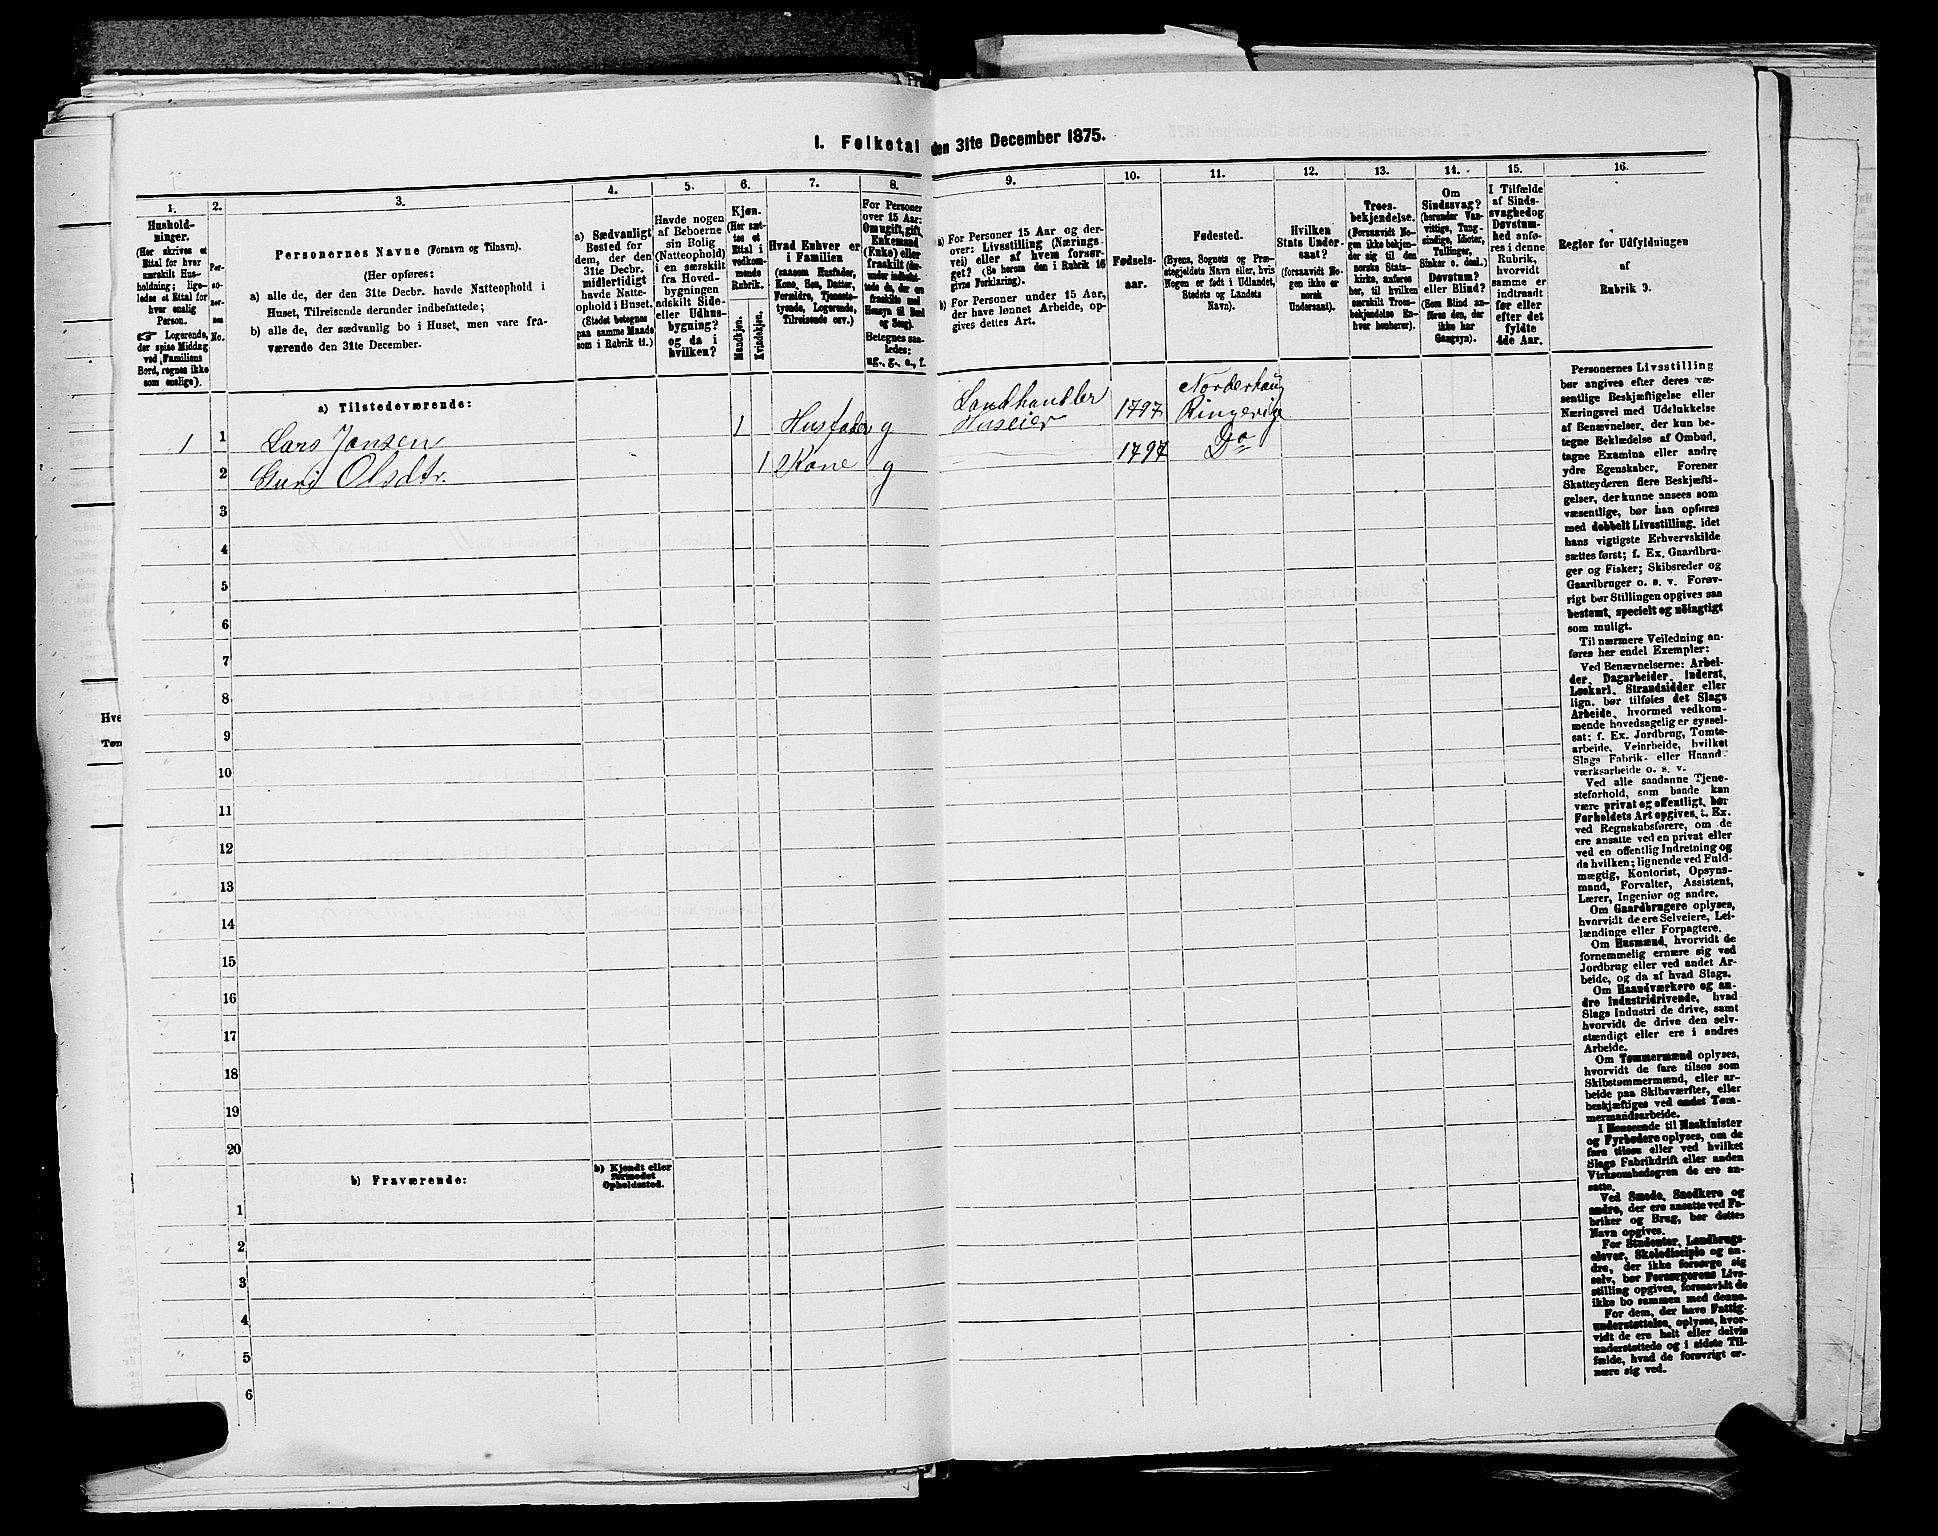 I. Folketal den 31te December 1875.
1.
Hushold-
ninger.
(Her skrives et
Ettal for hver
særskilt Hus-
holdning; lige-
ledes et Ettal for
hver enslig
Person.
☞ Logerende,
der spise Middag
ved Familiens
Bord, regnes ikke
som enslige).
2.
Per-
so-
ner-
nes
No.
3.
Personernes Navne (Fornavn og Tilnavn).
(Her opføres:
a) alle de, der den 31te Decbr. havde Natteophold i
Huset, Tilreisende derunder indbefattede;
b) alle de, der sædvanlig bo i Huset, men vare fra-
værende den 31te December.
4.
a) Sædvanligt
Bosted for
dem, der den
31te Decbr.
midlertidigt
havde Natte-
ophold i Huset.
(Stedet betegnes
paa samme Maade
som i Rubrik 11.)
5.
Havde nogen
af Beboerne
sin Bolig
(Natteophold)
i en særskilt
fra Hoved-
bygningen
adskilt Side-
eller Udhus-
bygning?
og da i
hvilken?
6.
Kjøn.
(Her sæt-
tes et
Ettal i
vedkom-
mende
Rubrik.
Mandkjøn.
Kvindekjøn.
7.
Hvad Enhver er
i Familien
(saasom Husfader,
Kone, Søn, Datter,
Forældre, Tjeneste-
tyende, Logerende,
Tilreisende osv.)
8.
For Personer
over 15 Aar:
Om ugift, gift,
Enkemand
(Enke) eller
fraskilt
Betegnes saa-
ledes:
ug., g., e., f.
9.
a) For Personer 15 Aar og der-
over: Livsstilling (Nærings-
vei) eller af hvem forsør-
get? (Se herom den i Rubrik 16
givne Forklaring).
b) For Personer under 15 Aar,
der have lønnet Arbeide, op-
gives dettes Art.
10.
Fødsels-
aar.
11.
Fødested.
(Byens, Sognets og Præ-
stegjeldets Navn eller, hvis
Nogen er født i Udlandet,
Stedets og Landets
Navn).
12.
Hvilken
Stats Under-
saat?
(forsaavidt No-
gen ikke er
norsk
Undersaat).
13.
Troes-
bekjendelse.
(Forsaavidt No-
gen ikke bekjen-
der sig til den
norske Stats-
kirke, anføres
her, til hvilken
særskilt Troes-
bekjendelse En-
hver henhører).
14.
Om
Sindssvag?
(herunder Van-
vittige, Tung-
sindige, Idioter,
Tullinger,
Sinker o. desl.)
Døvstum?
eller Blind?
(Som Blind an-
føres den, der
ikke har
Gangsyn).
15.
I Tilfælde
af Sinds-
svaghed og
Døvstum-
hed anfø-
res i denne
Rubrik,
hvorvidt
samme er
indtraadt
før eller
efter det
fyldte
4de Aar.
16.
Regler for Udfyldningen
af
Rubrik 9.
a) Tilstedeværende:
1 1 Lars Jansen 1 Husfader g Landhandler Huseier 1797 Norderhaug Ringerige
2 Guri Olsdtr. 1 Kone g 1797 Do
3
4
5
6
7
8
9
10
11
12
13
14
15
16
17
18
19
20
b) Fraværende:
b) Kjendt eller
formodet
Opholdssted.
1
2
3
4
5
6
Personernes Livsstilling
bør angives efter deres væ-
sentlige Beskjæftigelse eller
Næringsvei med Udelukkelse
af Benævnelser, der kun be-
tegne Beklædelse af Ombud,
tagne Examina eller andre
ydre Egenskaber. Forener
Skatteyderen flere Beskjæfti-
gelser, der kunne ansees som
væsentlige, bør han opføres
med dobbelt Livsstilling, idet
hans vigtigste Erhvervskilde
sættes først; f. Ex. Gaardbru-
ger og Fisker; Skibsreder og
Gaardbruger o. s. v. Forøv-
rigt bør Stillingen opgives saa
bestemt, specielt og nöiagtigt
som muligt.
Til nærmere Veiledning an-
føres her endel Exempler:
Ved Benævnelserne: Arbei-
der, Dagarbeider, Inderst,
Løskarl, Strandsidder eller
lign. bør tilføies det Slags
Arbeide, hvormed vedkom-
mende hovedsagelig er syssel-
sat; f. Ex. Jordbrug, Tomte-
arbeide, Veiarbeide, hvilket
Slags Fabrik- eller Haand-
værksarbeide o. s. v.
Ved alle saadanne Tjene-
steforhold, som baade kan
være privat og offentligt, bør
Forholdets Art opgives, f. Ex.
ved Regnskabsførere, om de
ere ansatte ved en privat eller
ved en offentlig Indretning og
da hvilken; lignende ved Fuld-
mægtig, Kontorist, Opsyns-
mand, Forvalter, Assistent,
Lærer, Ingeniør og andre.
Om Gaardbrugere oplyses,
hvorvidt de ere Selveiere, Lei-
lændinge eller Forpagtere.
Om Husmænd, hvorvidt de
fornemmelig ernære sig ved
Jordbrug eller ved andet Ar-
beide, og da af hvad Slags.
Om Haandværkere og an-
dre Industridrivende, hvad
Slags Industri de drive, samt
hvorvidt de drive den selv-
stændigt eller ere i andres
Arbeide.
Om Tømmermænd oplyses,
hvorvidt de fare tilsøs som
Skibstømmermænd, eller ar-
beide paa Skibsværfter, eller
beskjæftiges ved andet Tøm-
mermandsarbeide.
I Henseende til Maskinister
og Fyrbødere oplyses, om de
fare tilsøs eller ved hvilket
Slags Fabrikdrift eller anden
Virksomhedsgren de ere an-
satte.
Ved Smede, Snedkere og
andre, der ere ansatte ved Fa-
briker og Brug, bør dettes
Navn opgives.
For Studenter, Landbrugs-
elever, Skoledisciple og an-
dre, der ikke forsørge sig
selv, bør Forsørgerens Livs-
stilling opgives, forsaavidt de
ikke bo sammen med denne.
For dem, der have Fattig-
understøttelse, oplyses, hvor-
vidt de ere helt eller delvis
understøttede og i sidste Til-
fælde, hvad de forøvrigt er-
nære sig ved.